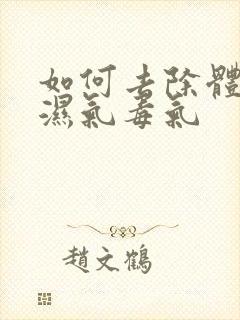 如何去除體
濕氣毒氣
趙文鶴